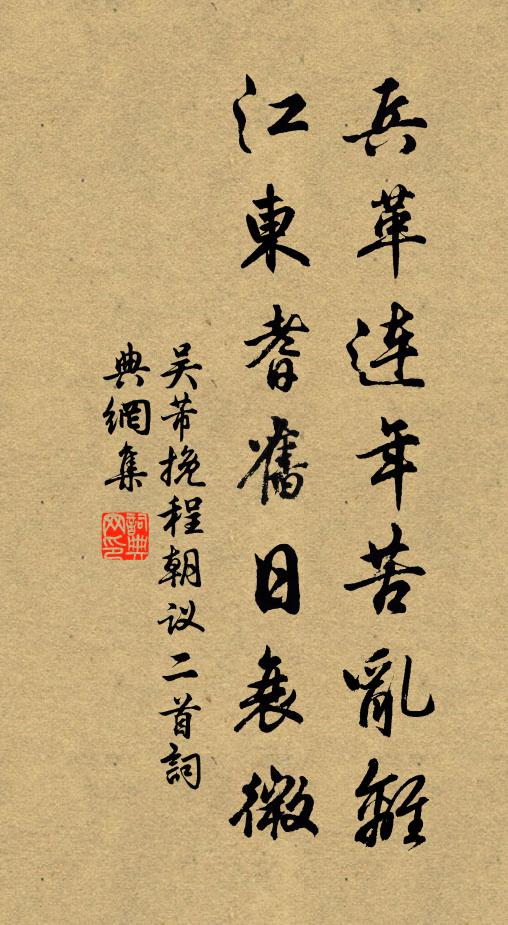 兵革连年苦亂離
江東耆舊日衰微
吴芾挽程朝议二首詞
典網集
詞典
网印